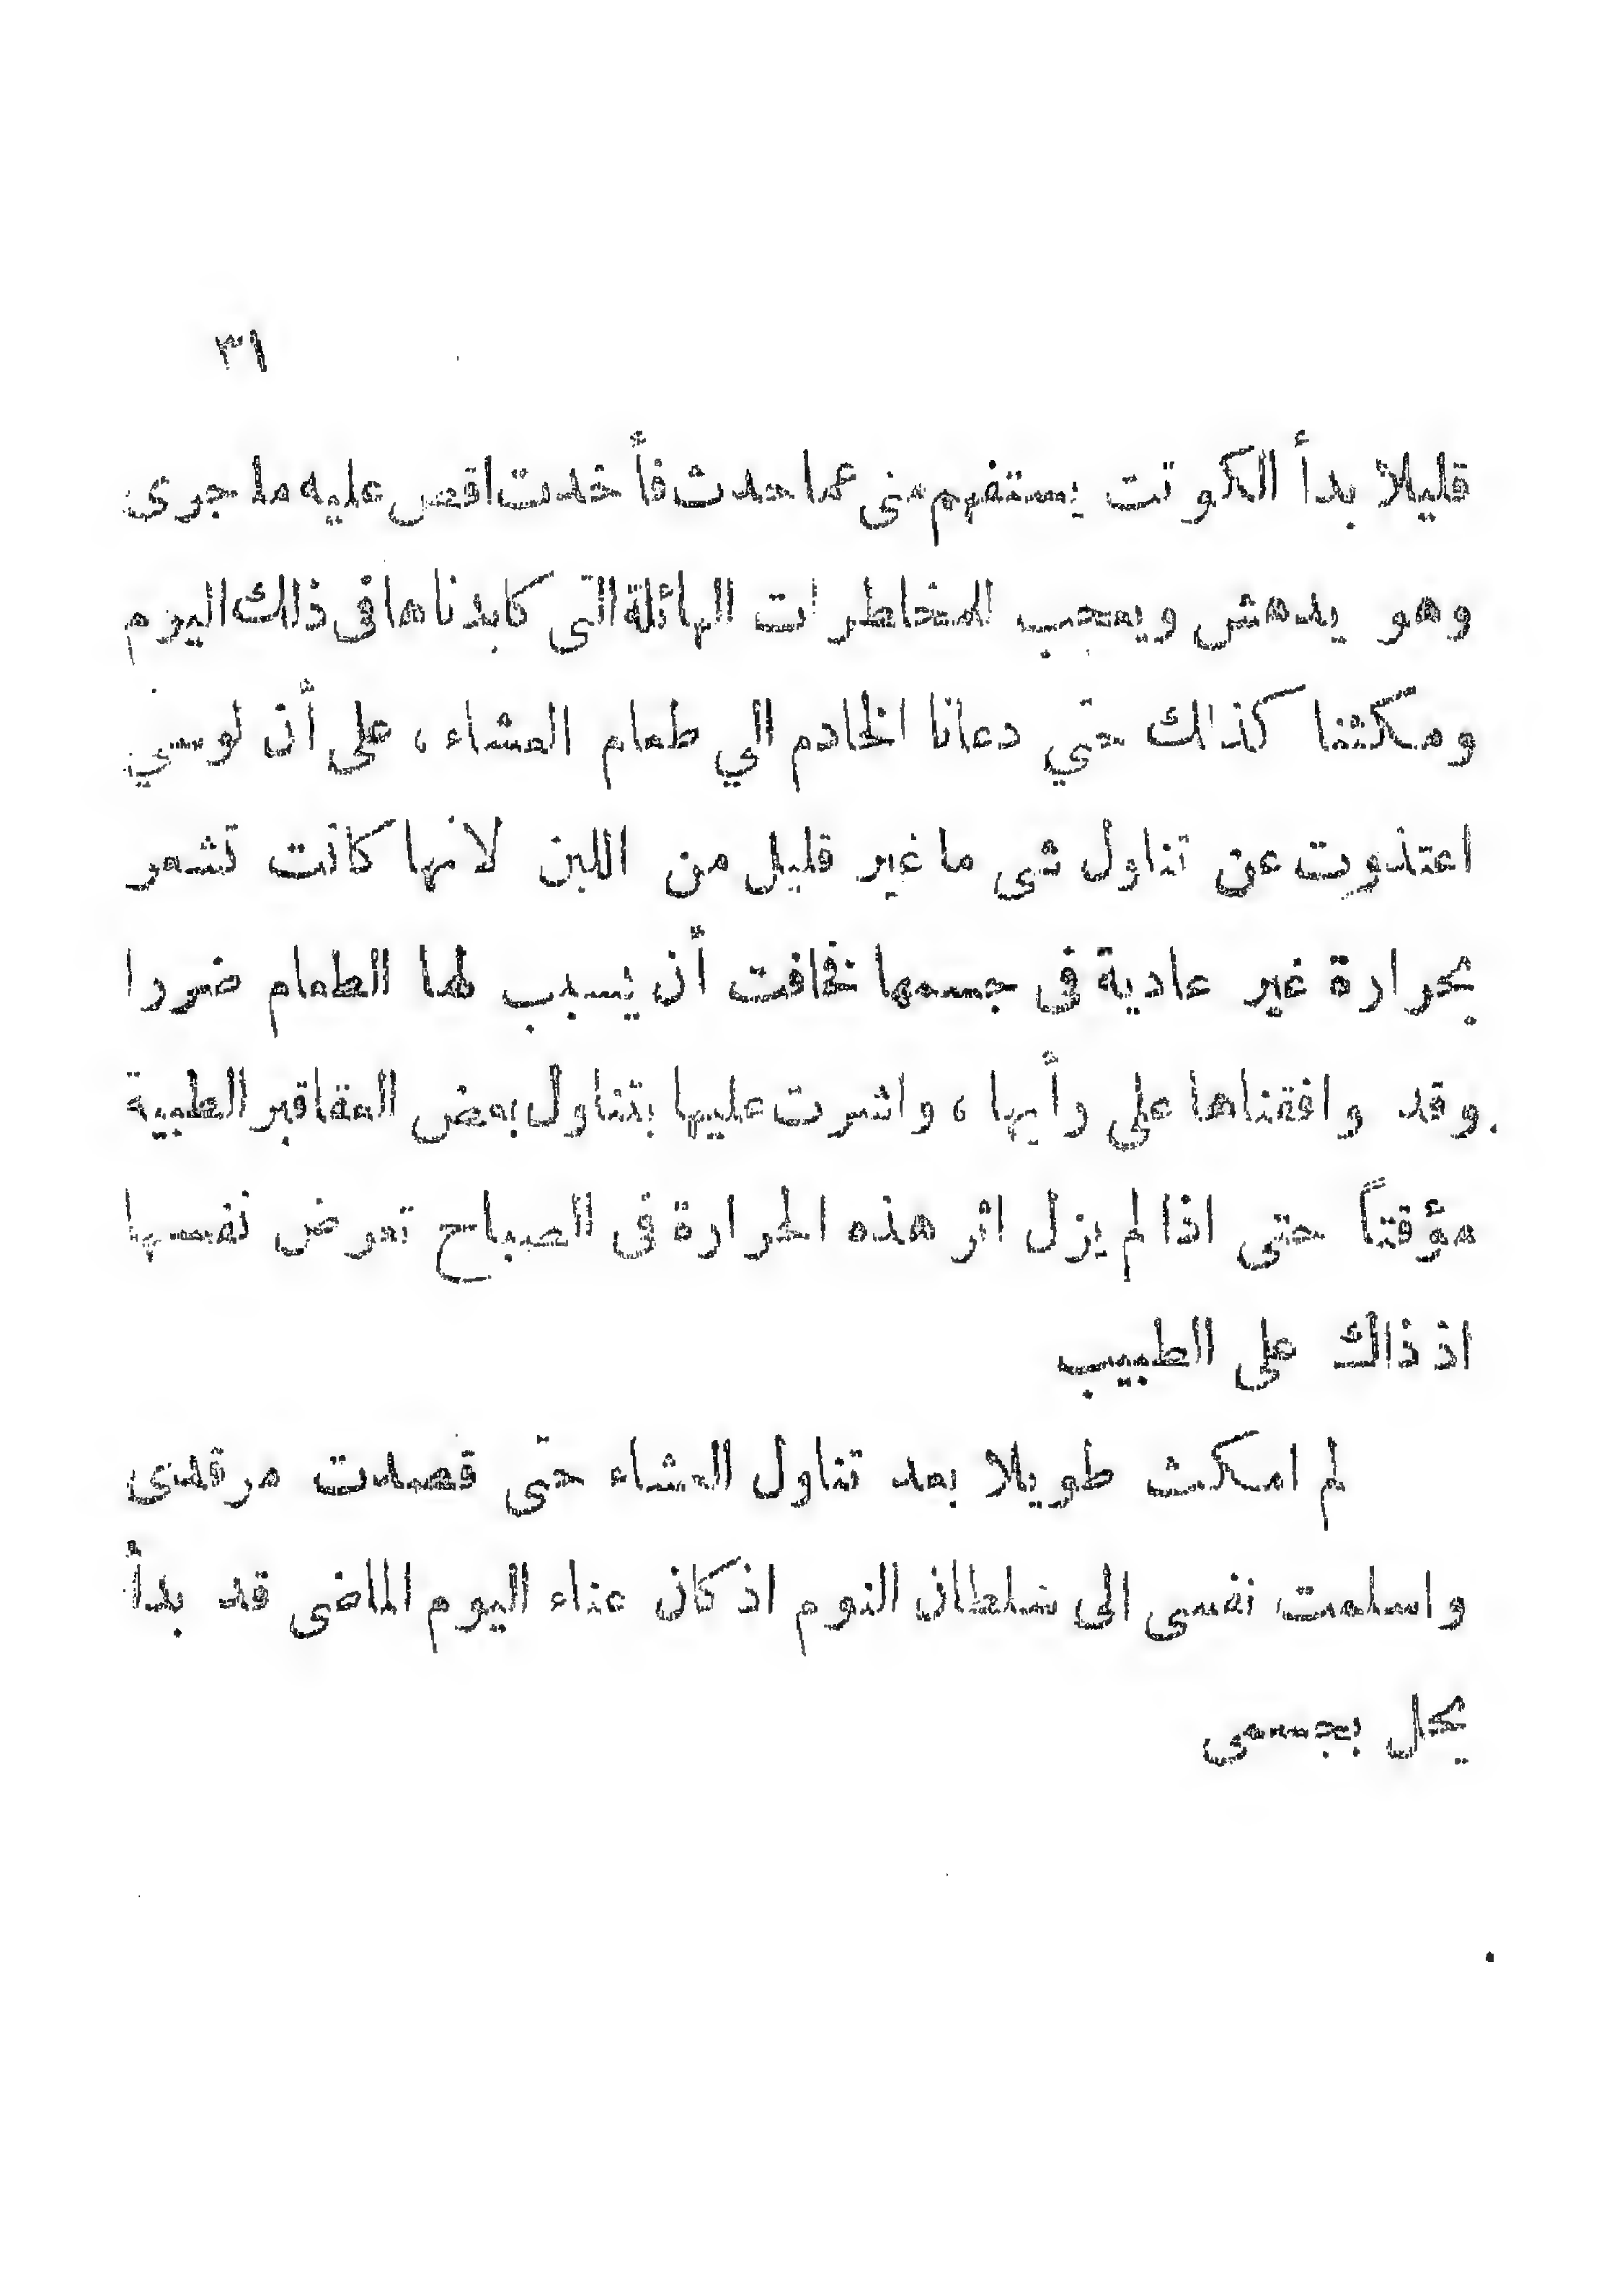 ٣١
قليلا بدأ الكونت يستفهم منى عما حدث فأخذت اقص عليه ما جرى
وهو يدهش ويعجب للمخاطرات الهائلة التى كابدناها فى ذلك اليوم
ومكثنا كذلك حتي دعانا الخادم الي طعام العشاء ، على أن لوسي
اعتذرت عن تناول شى ما غير قليل من اللبن لانها كانت تشعر
بحرارة غير عادية فى جسمها فخافت أن يسبب لها الطعام ضررا
وقد وافقناها على رأيها ، واشرت عليها بتناول بعض العقاقير الطبية
مؤقتاً حتى اذا لم يزل اثر هذه الحرارة فى الصباح تعرض نفسها
اذ ذاك على الطبيب
لم امكث طويلا بعد تناول العشاء حتى قصدت مرقدى
واسلمت نفسى الى سلطان النوم اذ كان عناء اليوم الماضى قد بدأ
يحل بجسمى